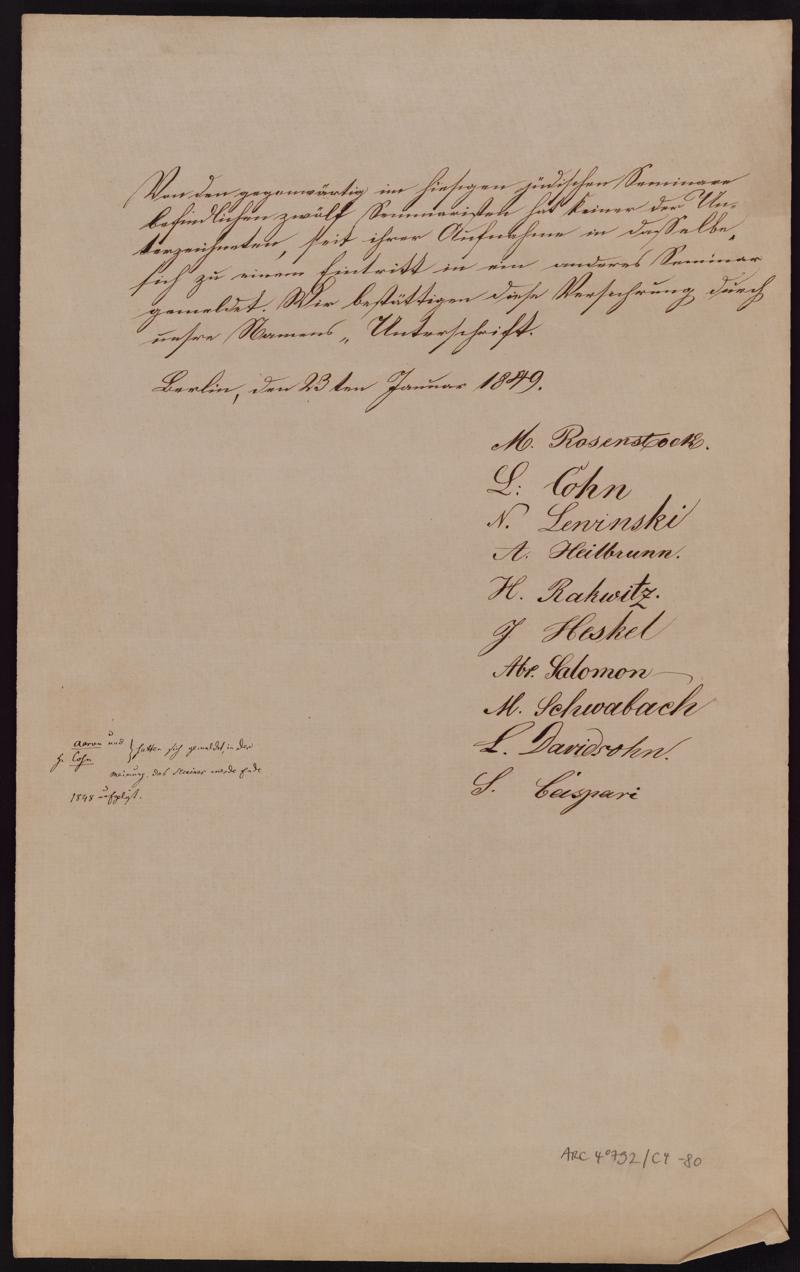 Von den gegenwärtig im hiesigen jüdischen Seminare
befindlichen zwölf Seminaristen hat keiner der Un-
terzeichneten, seit ihrer Aufnahme in dasselbe,
sich zu einem Eintritt in ein anderes Seminar
gemeldet. Wir bestättigen diese Versichrung durch
unsre Namens„ Unterschrift.
Berlin, den 23ten Januar 1849.
M. Rosenstock.
L: Cohn
N. Lewinski
A. Heilbrunn.
H. Rakwitz.
J Heskel
Abr. Salomon
M. Schwabach
L. Davidsohn.
S. Caspari
Aaron und
H. Cohn } hatten sich gemeldet, in der
Meinung, das Seminar werde Ende
1848 aufgelöst.
ARC 4°792/C4-80